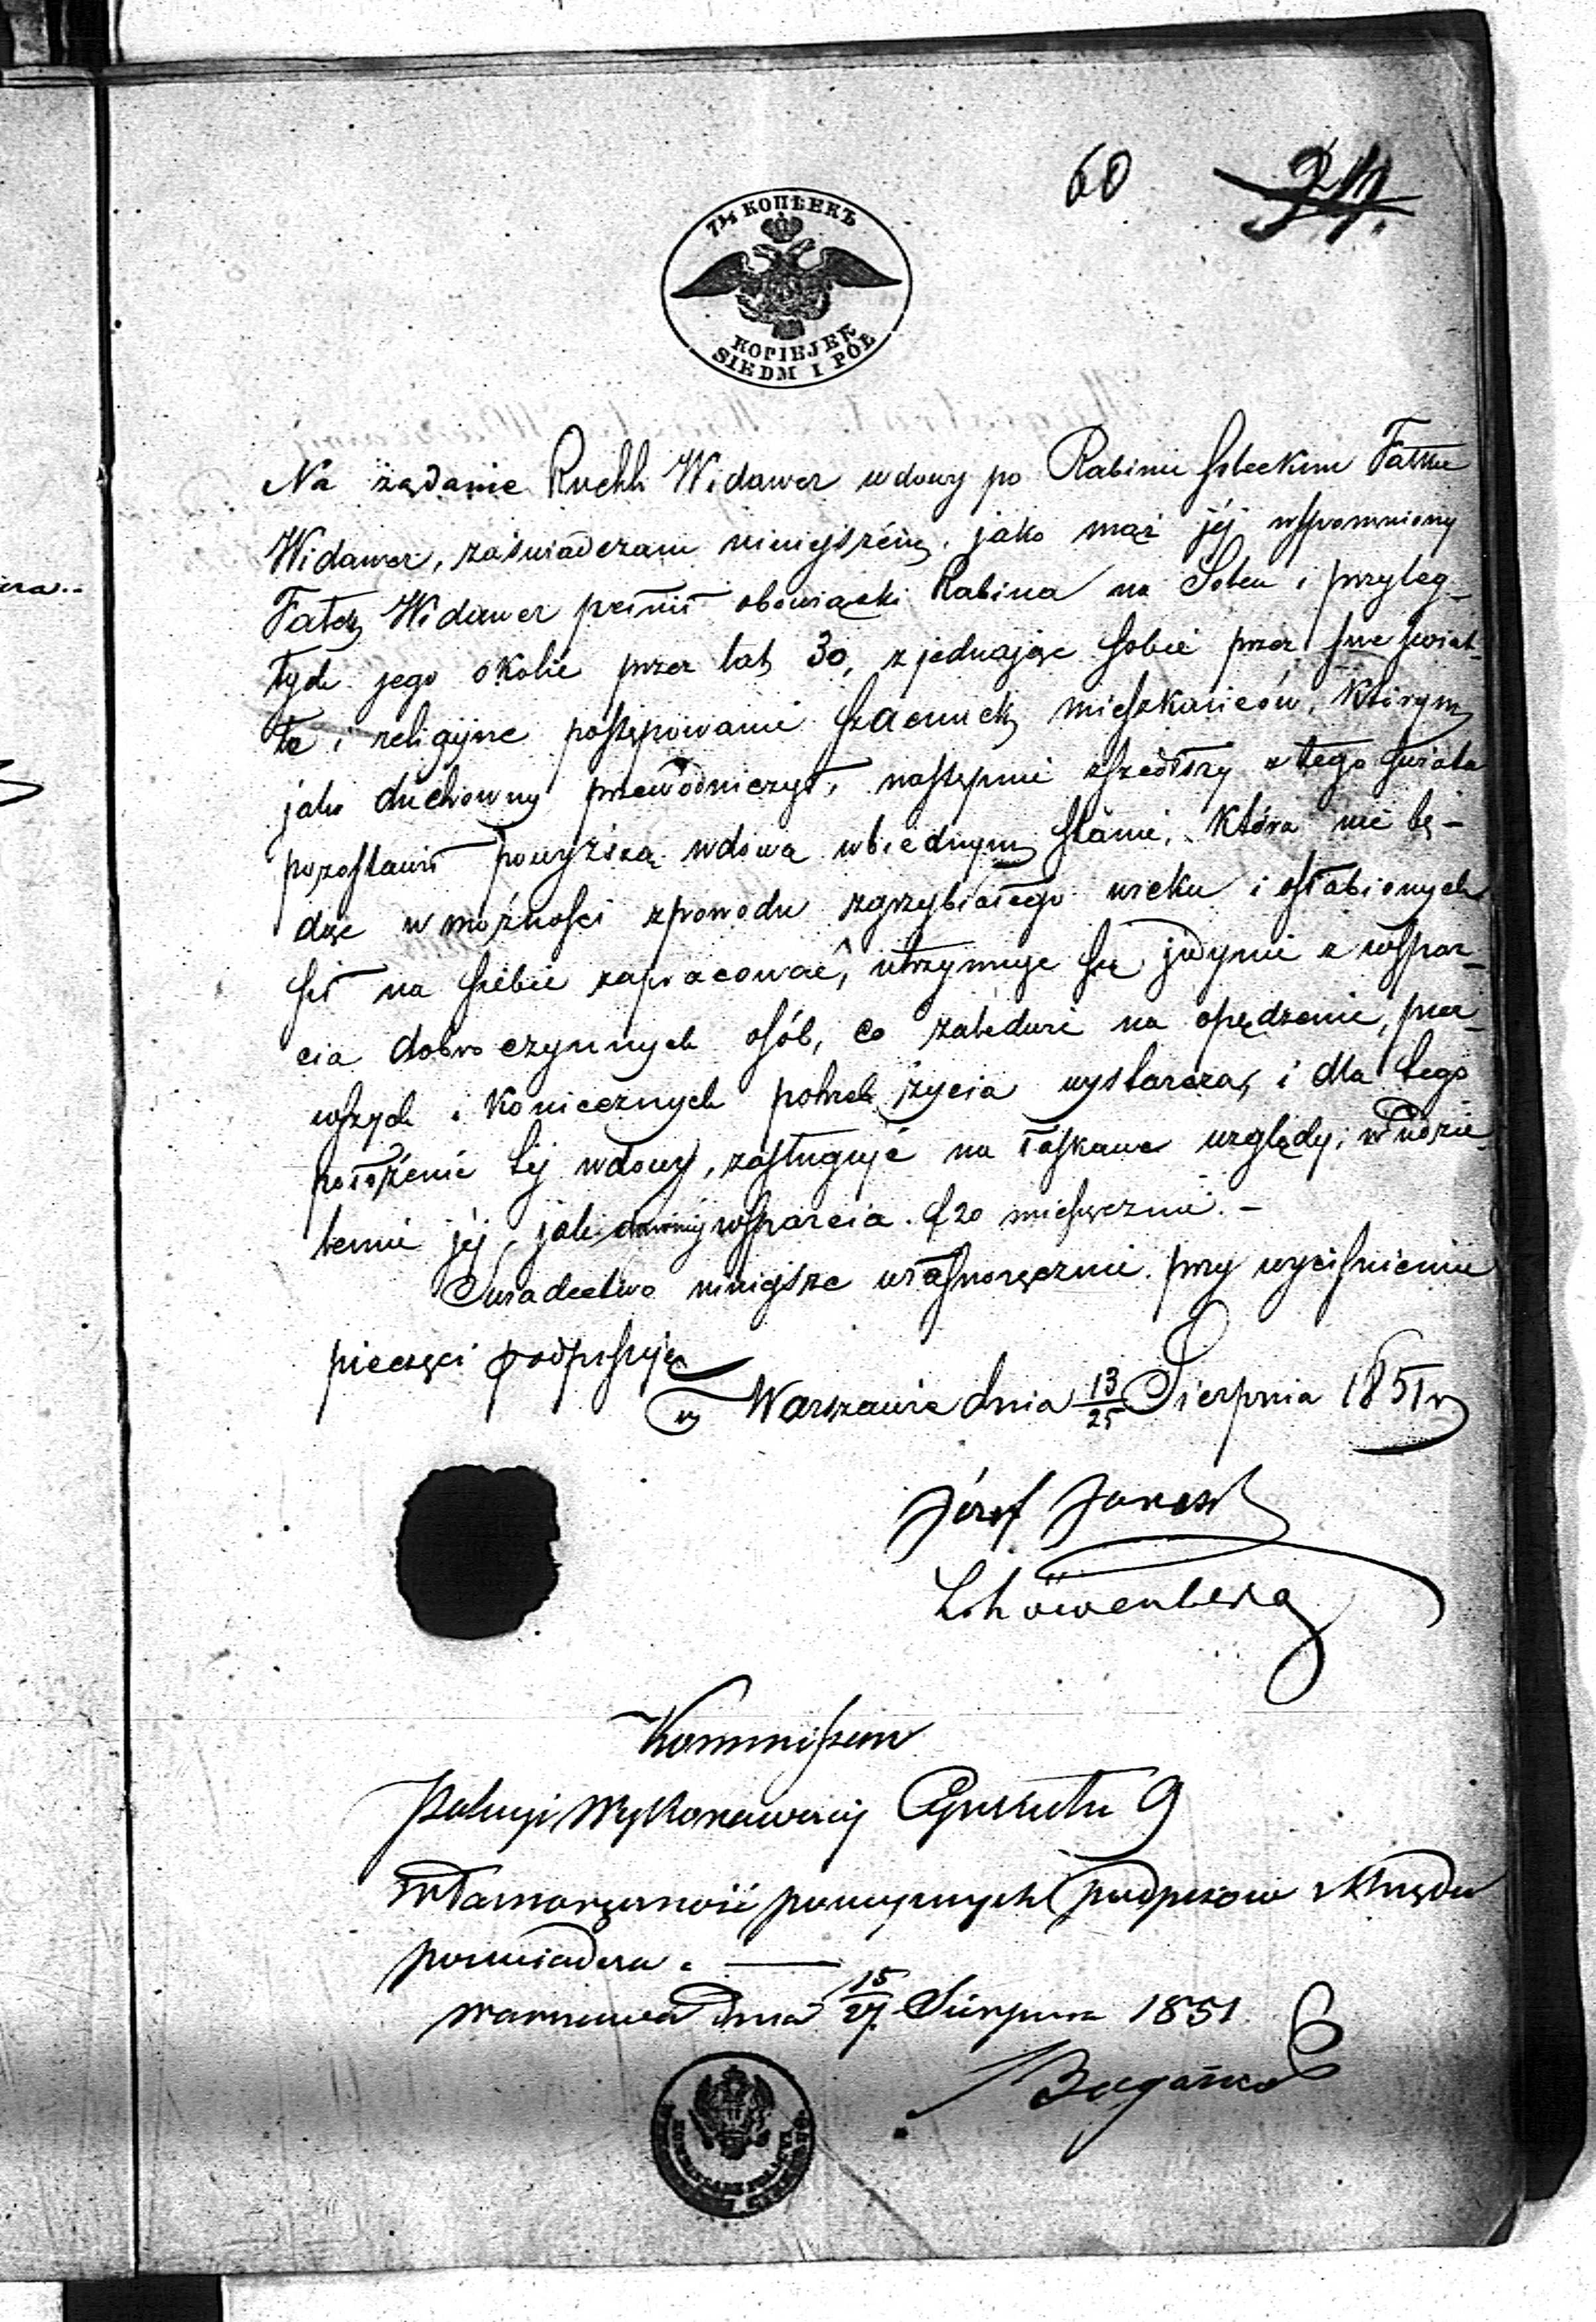 60 24.
7½ КОПѢЕКЪ
KOPIEJEK
SIEDM I PÓŁ
Na żądanie Ruchli Widawer wdowy po Rabinie Soleckim Fatku
Widawer, zaświadczam niniejszém, jako mąż jéj wspomniony
Fatek Widawer pełnił obowiązki Rabina na Solcu i przyleg-
łych jego okolic przez lat 30, zjednając sobie przez swe świat-
łe i religijne postępowanie szacunek mieszkańców, którym
jako duchowny przewodniczył, następnie zszedłszy z tego świata
pozostawił powyższą wdowę w biednym stanie, która nie bę-
dąc w możności z powodu zgrzybiałego wieku i osłabionych
sił na siebie zapracować, utrzymuje się jedynie z wspar-
cia dobroczynnych osób, co zaledwie na opędzenie, pier-
wszych i koniecznych potrzeb życia wystarcza, i dla tego
położenie téj wdowy, zasługuje na łaskawe względy, w udzie-
leniu jéj, jak dawniéj wsparcia f 20 miesięcznie. –
Swiadectwo niniejsze własnoręcznie przy wyciśnieniu
pieczęci podpisuję
w Warszawie dnia 13/25 Sierpnia 1851 r
Józef
Löwenberg
Kommissarz
Policyi Wykonawczéj Cyrkułu 9
Własnoręczność powyższych podpisów z Urzędu
poswiadcza. —
Warszawa dnia 15/27 Sierpnia 1851